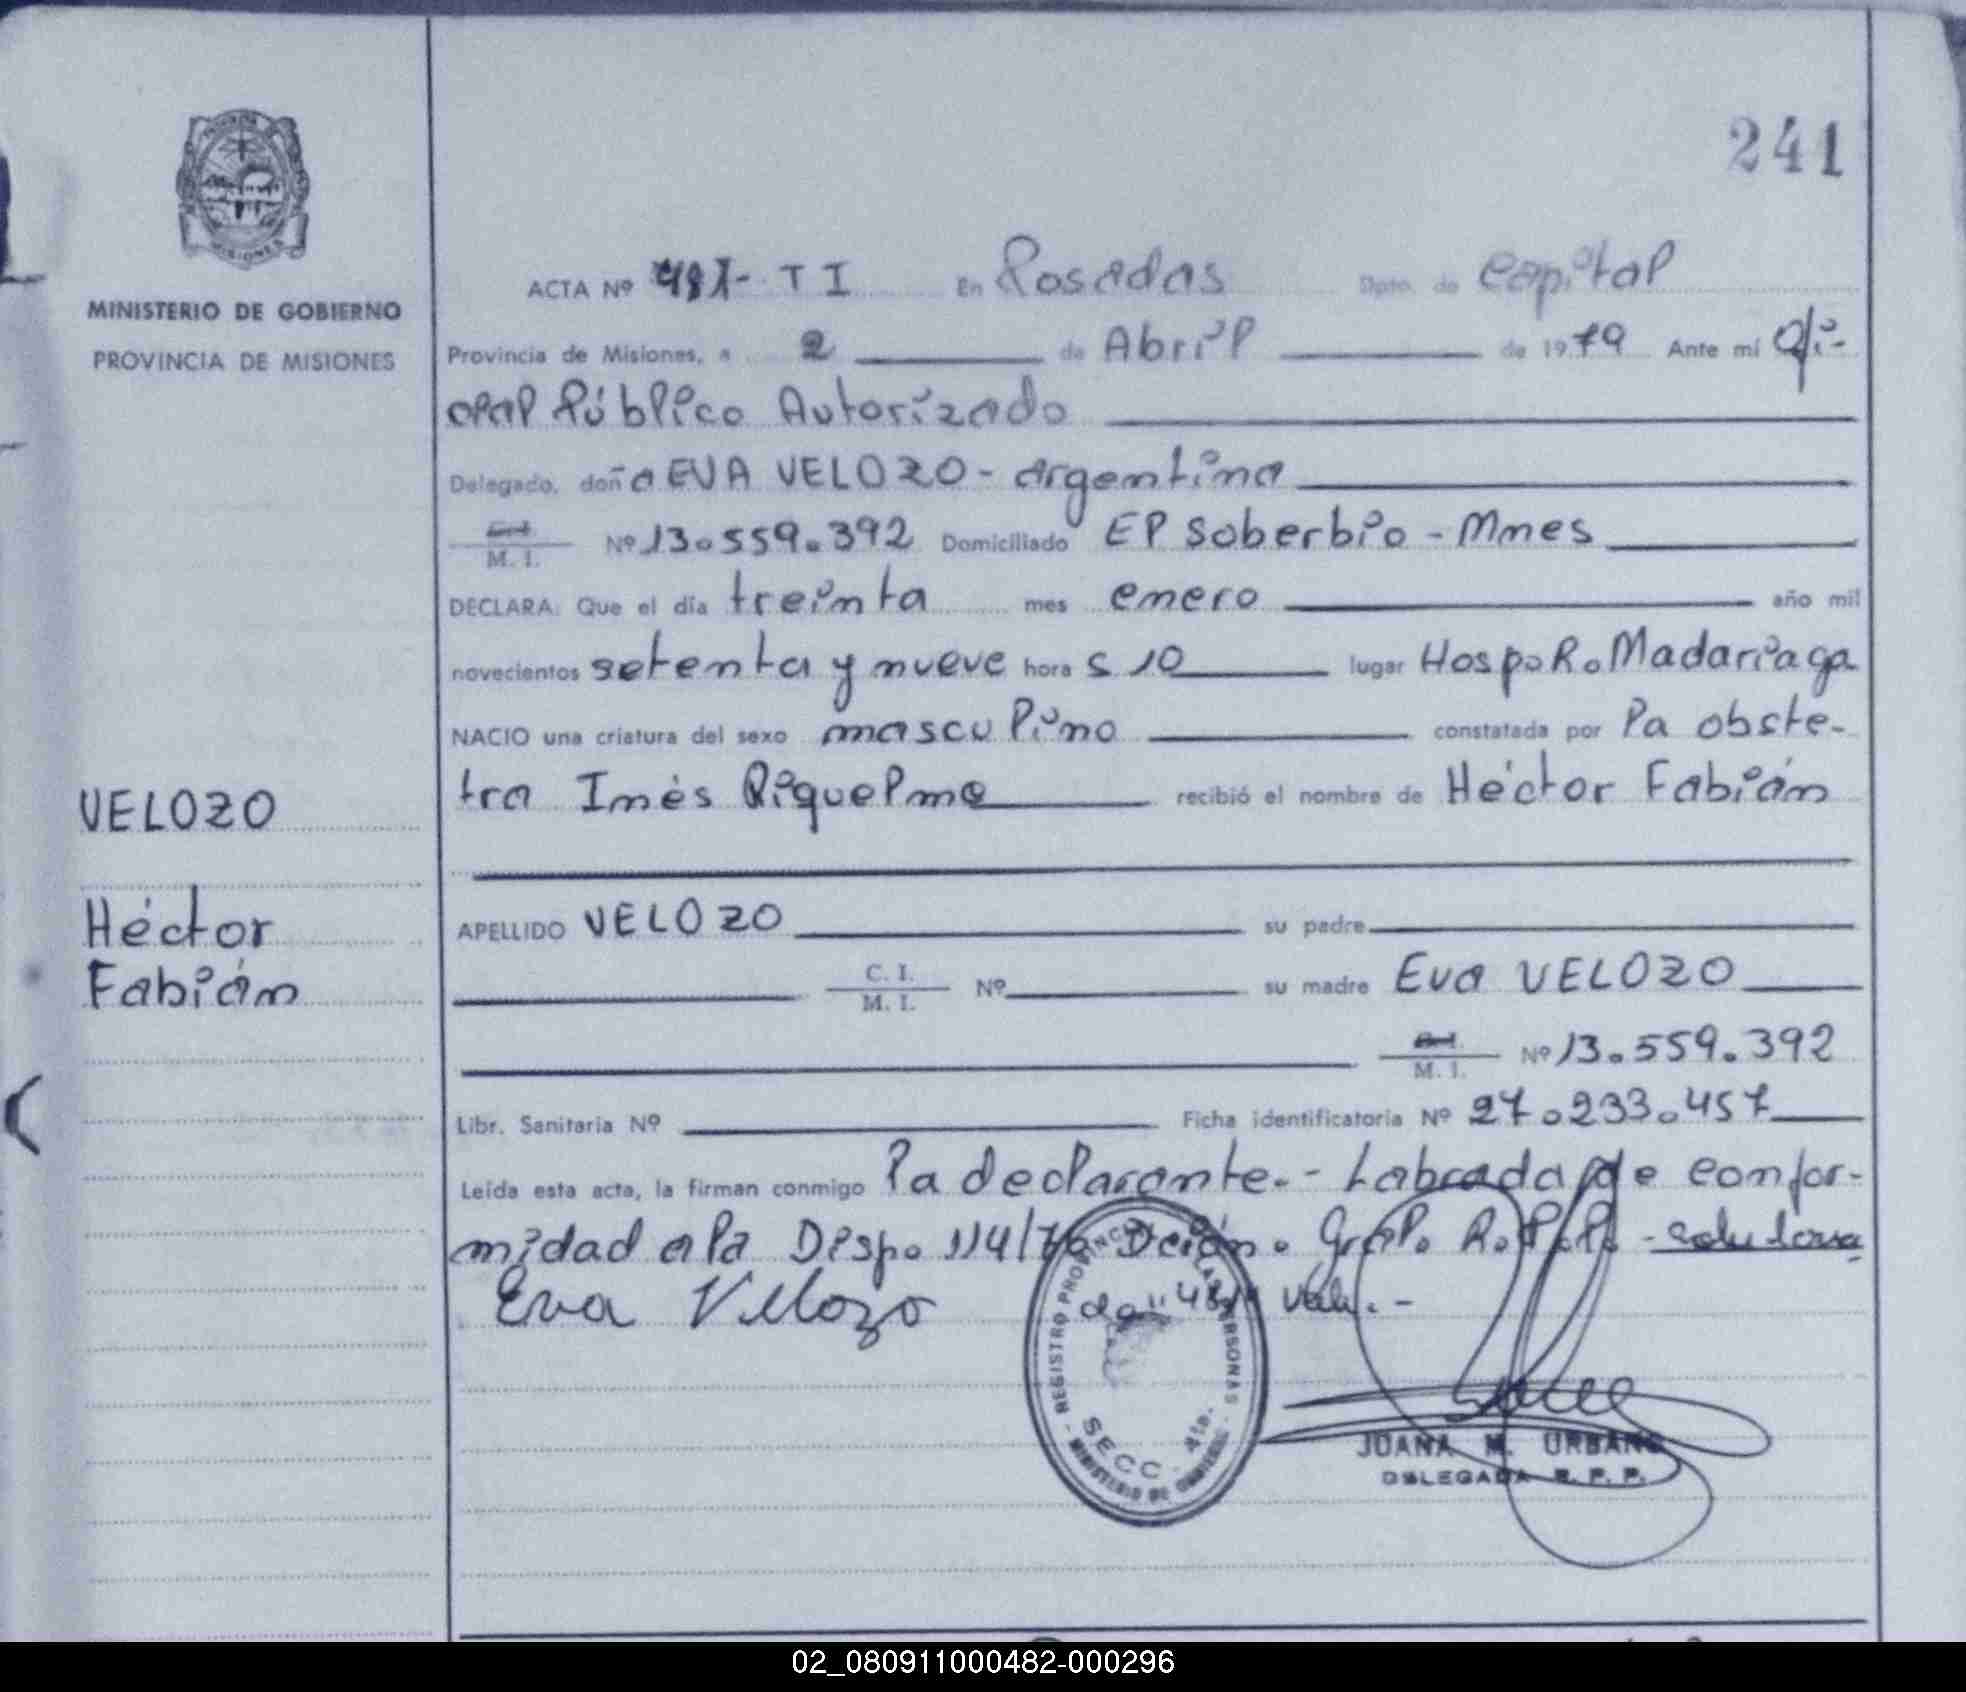 241
PROVINCIA DE
MISIONES
MINISTERIO DE GOBIERNO
PROVINCIA DE MISIONES
ACTA Nº 481- T I En Posadas Dpto. de Capital
Provincia de Misiones, a 2 de Abril de 1979 Ante mí Ofi-
cial Público Autorizado
Delegado, doña EVA VELOZO - argentina
M. I. Nº 13.559.392 Domiciliado El Soberbio - Mnes
DECLARA: Que el día treinta mes enero año mil
novecientos setenta y nueve hora s 10 lugar Hosp. R. Madariaga
NACIO una criatura del sexo masculino constatada por la obste-
tra Inés Riquelme recibió el nombre de Héctor Fabián
VELOZO
Héctor
Fabián
APELLIDO VELOZO su padre
C. I.
M. I. Nº su madre Eva VELOZO
M. I. Nº 13.559.392
Libr. Sanitaria Nº Ficha identificatoria Nº 27.233.457
Leída esta acta, la firman conmigo la declarante.- Labrada de confor-
midad a la Disp. 114/76 Gral. R.P.P.-
Eva Velozo
REGISTRO PROVINCIAL DE LAS PERSONAS
SECC. 4ta.
MINISTERIO DE GOBIERNO
JUANA M. URBANO
DELEGADA R. P. P.
02_080911000482-000296